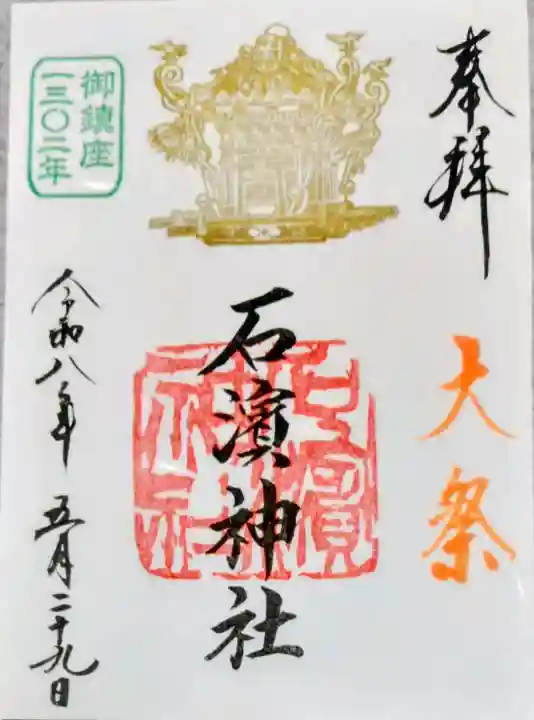 奉拝
大祭
石濱神社
御鎮座
一三〇二年
令和八年 五月二十九日